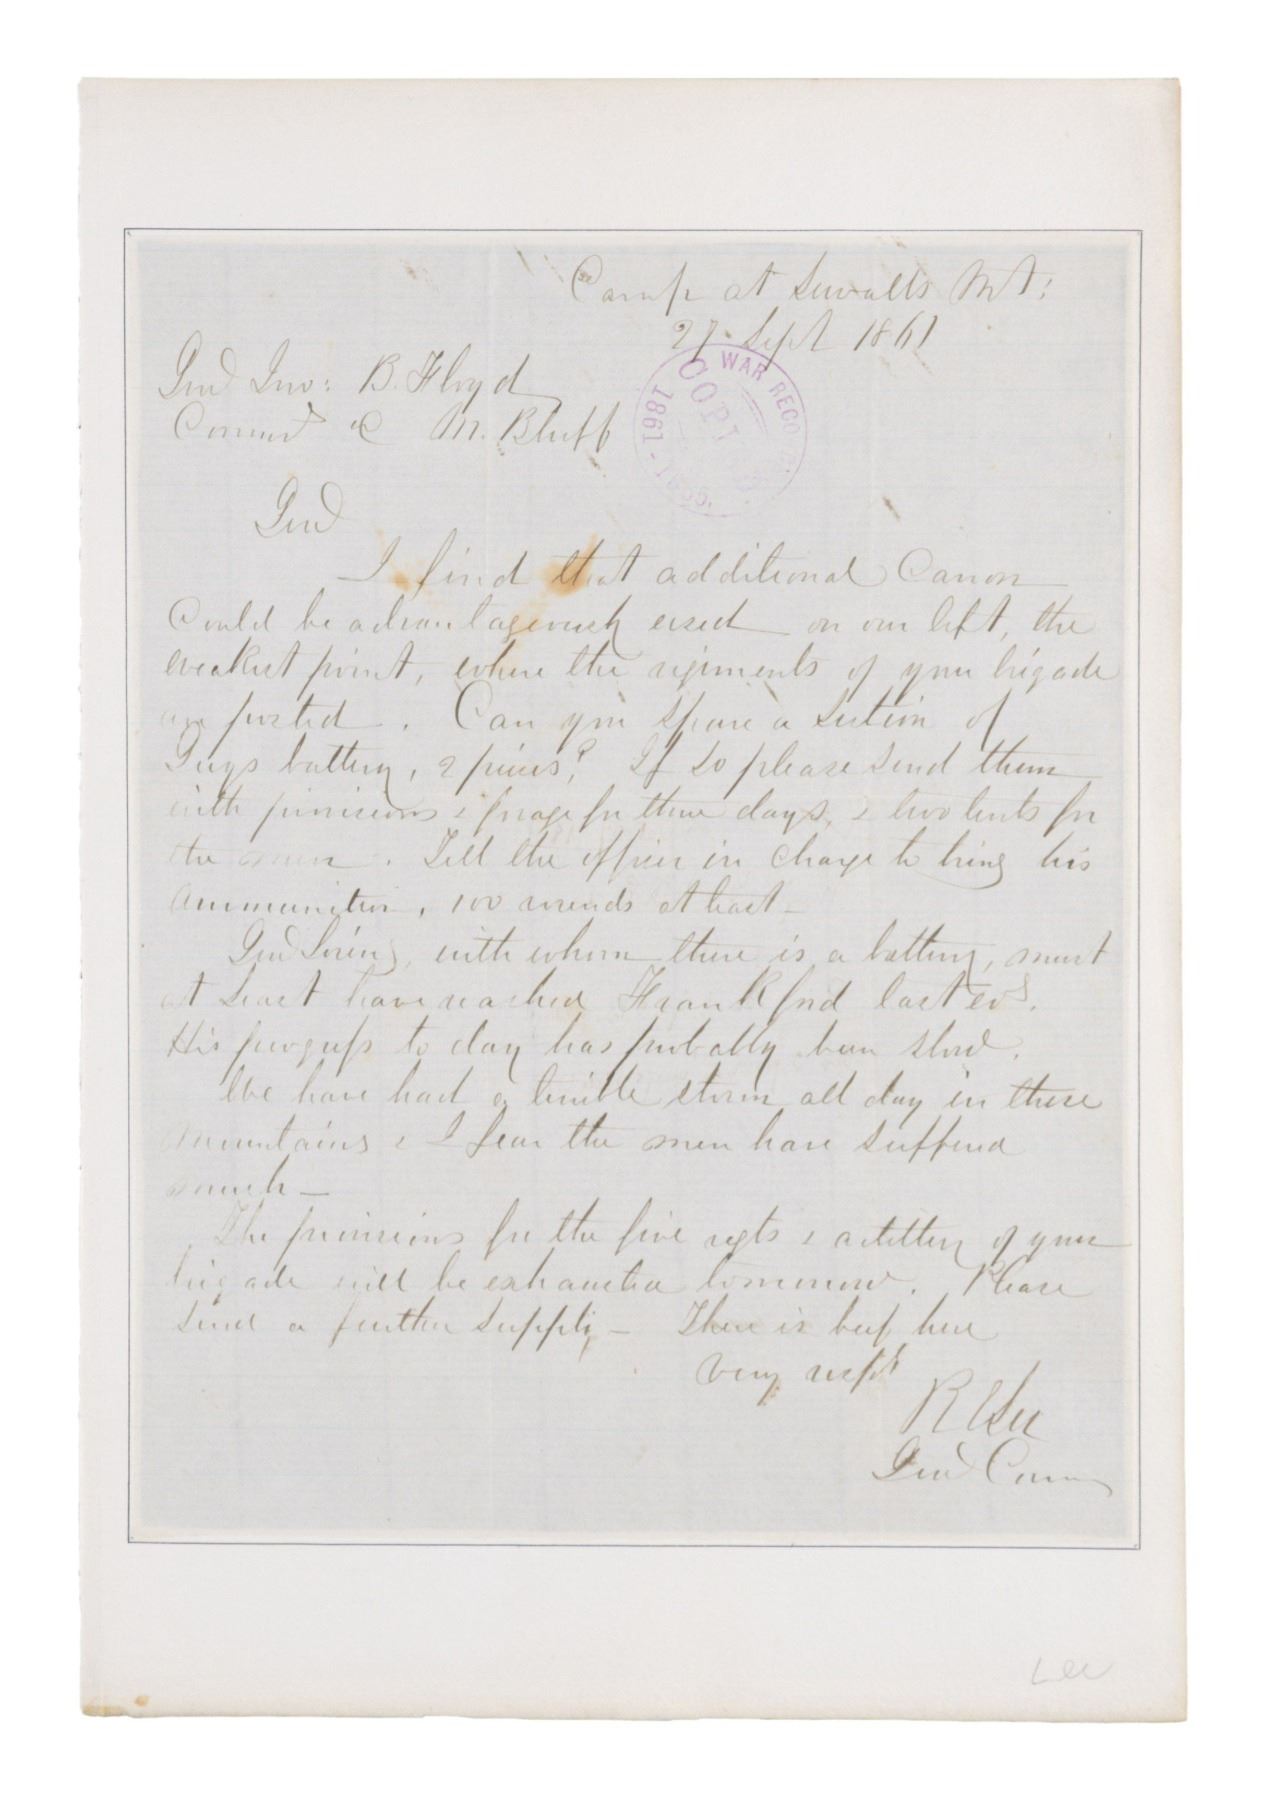 Camp at Sewalls Mt:
27 Sept 1861
Genl Jno: B. Floyd
Commd &c M. Bluff
WAR RECO
COPI
1861-1865.
Genl
I find that additional Canon
Could be advantageously used on our left, the
weakest point, where the regiments of your brigade
are posted. Can you spare a section of
Guys battery, 2 pieces? If so please send them
with provisions & forage for three days, & two tents for
the men. Tell the officer in charge to bring his
Ammunition, 100 rounds at least—
Genl Loring, with whom there is a battery, must
at least have reached Frankford last evg.
His progress to day has probably been slow.
We have had a terrible storm all day in these
mountains & I fear the men have suffered
much—
The provisions for the five regts & artillery of your
brigade will be exhausted tomorrow. Please
send a further supply— There is beef here
Very respt
R E Lee
Genl Comm
Lee